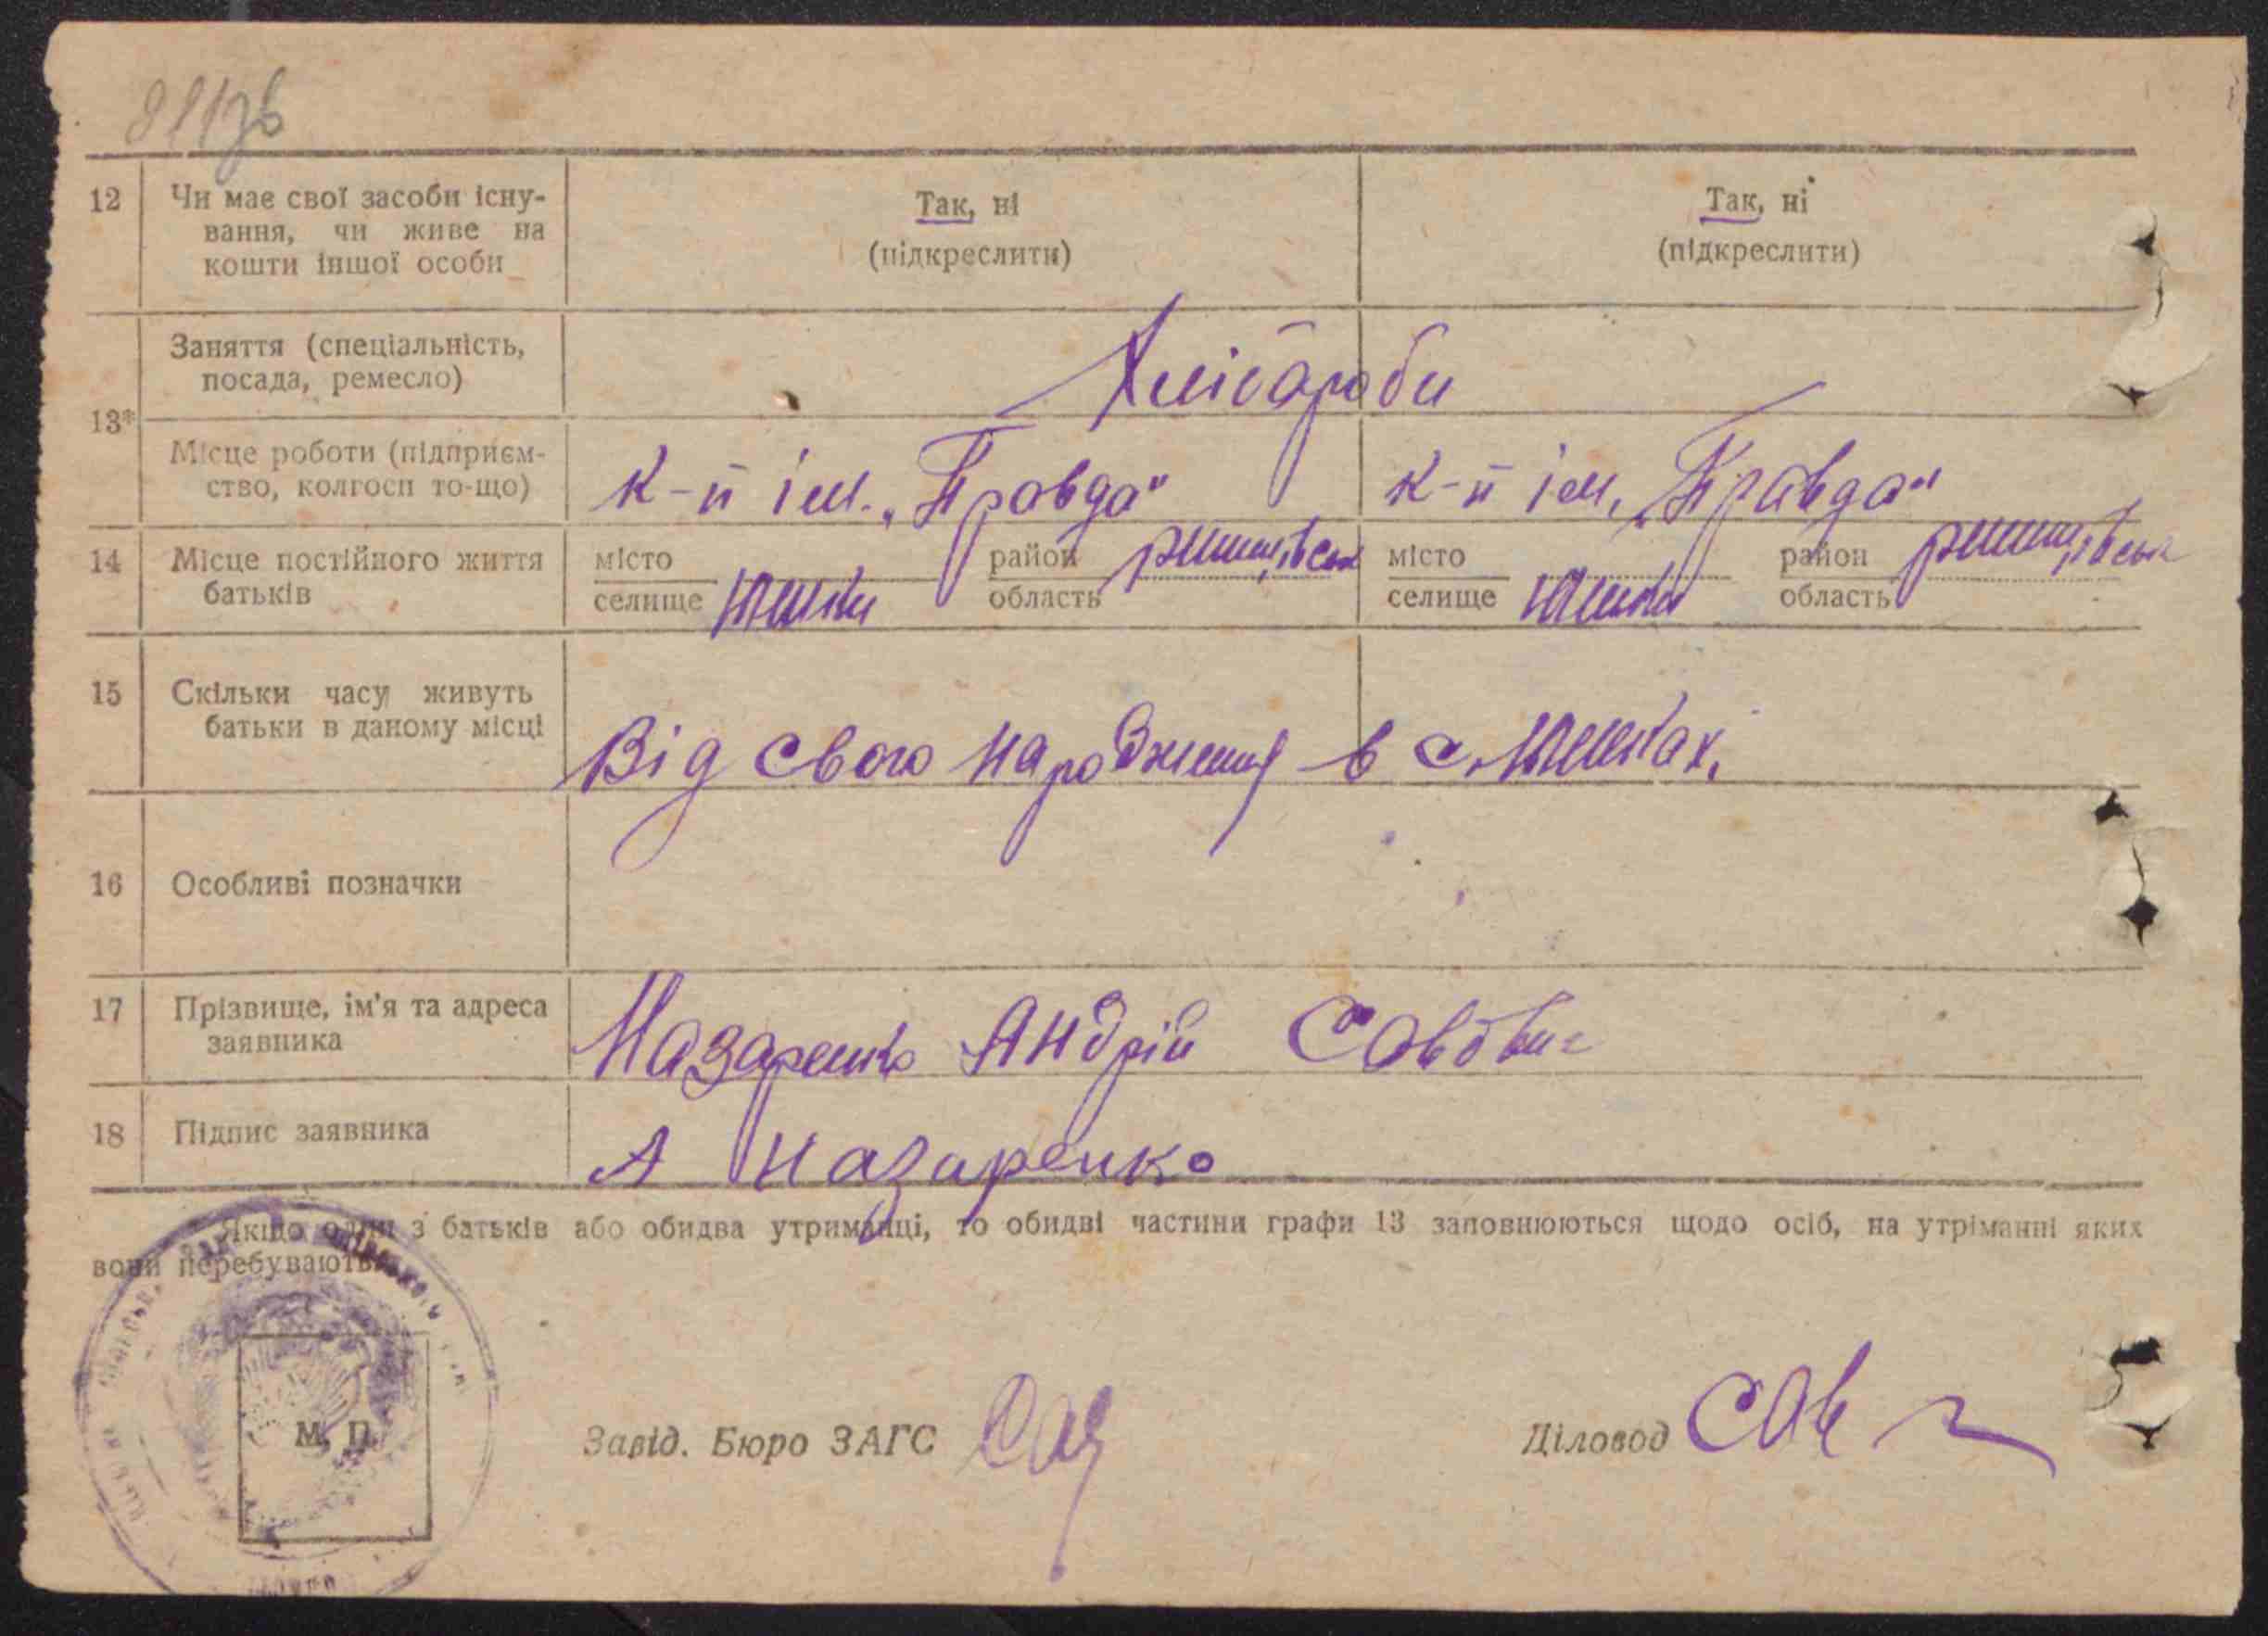 12 Чи має свої засоби існу-
вання, чи живе на
кошти іншої особи
Так, ні
(підкреслити)
Так, ні
(підкреслити)
13*
Заняття (спеціальність,
посада, ремесло)
Хлібароби
Місце роботи (підприєм-
ство, колгосп то-що)
К-п ім. „Правда"
К-п ім. „Правда"
14 Місце постійного життя
батьків
місто
селище Юшки
район
область
місто
селище Юшки
район
область
15 Скільки часу живуть
батьки в даному місці
Від свого народження в с. Юшках.
16 Особливі позначки
17 Прізвище, ім'я та адреса
заявника
Назаренко Андрій Савович
18 Підпис заявника
А Назаренко
Якщо один з батьків або обидва утриманці, то обидві частини графи 13 заповнюються щодо осіб, на утріманні яких
вони перебувають.
М. П.
Завід. Бюро ЗАГС
Діловод